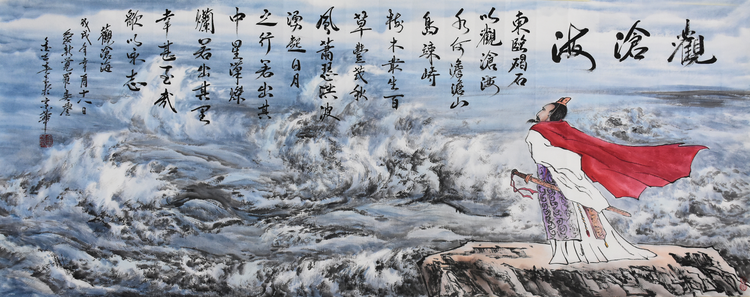 觀滄海
東臨碣石
以觀滄海
水何澹澹山
島竦峙
樹木叢生百
草豐茂秋
風蕭瑟洪波
湧起日月
之行若出其
中星漢燦
爛若出其里
幸甚至哉
歌以詠志
觀滄海
戊戌年月十八日